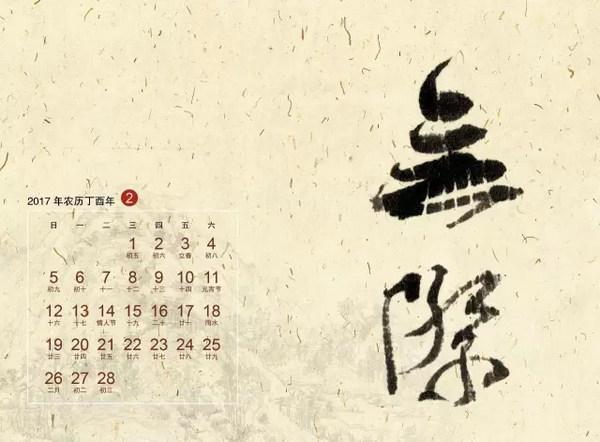 無際
2017 年农历丁酉年 2
日 一 二 三 四 五 六
1 2 3 4
初五 初六 立春 初八
5 6 7 8 9 10 11
初九 初十 十一 十二 十三 十四 元宵节
12 13 14 15 16 17 18
十六 十七 情人节 十九 二十 廿一 雨水
19 20 21 22 23 24 25
廿三 廿四 廿五 廿六 廿七 廿八 廿九
26 27 28
二月 初二 初三